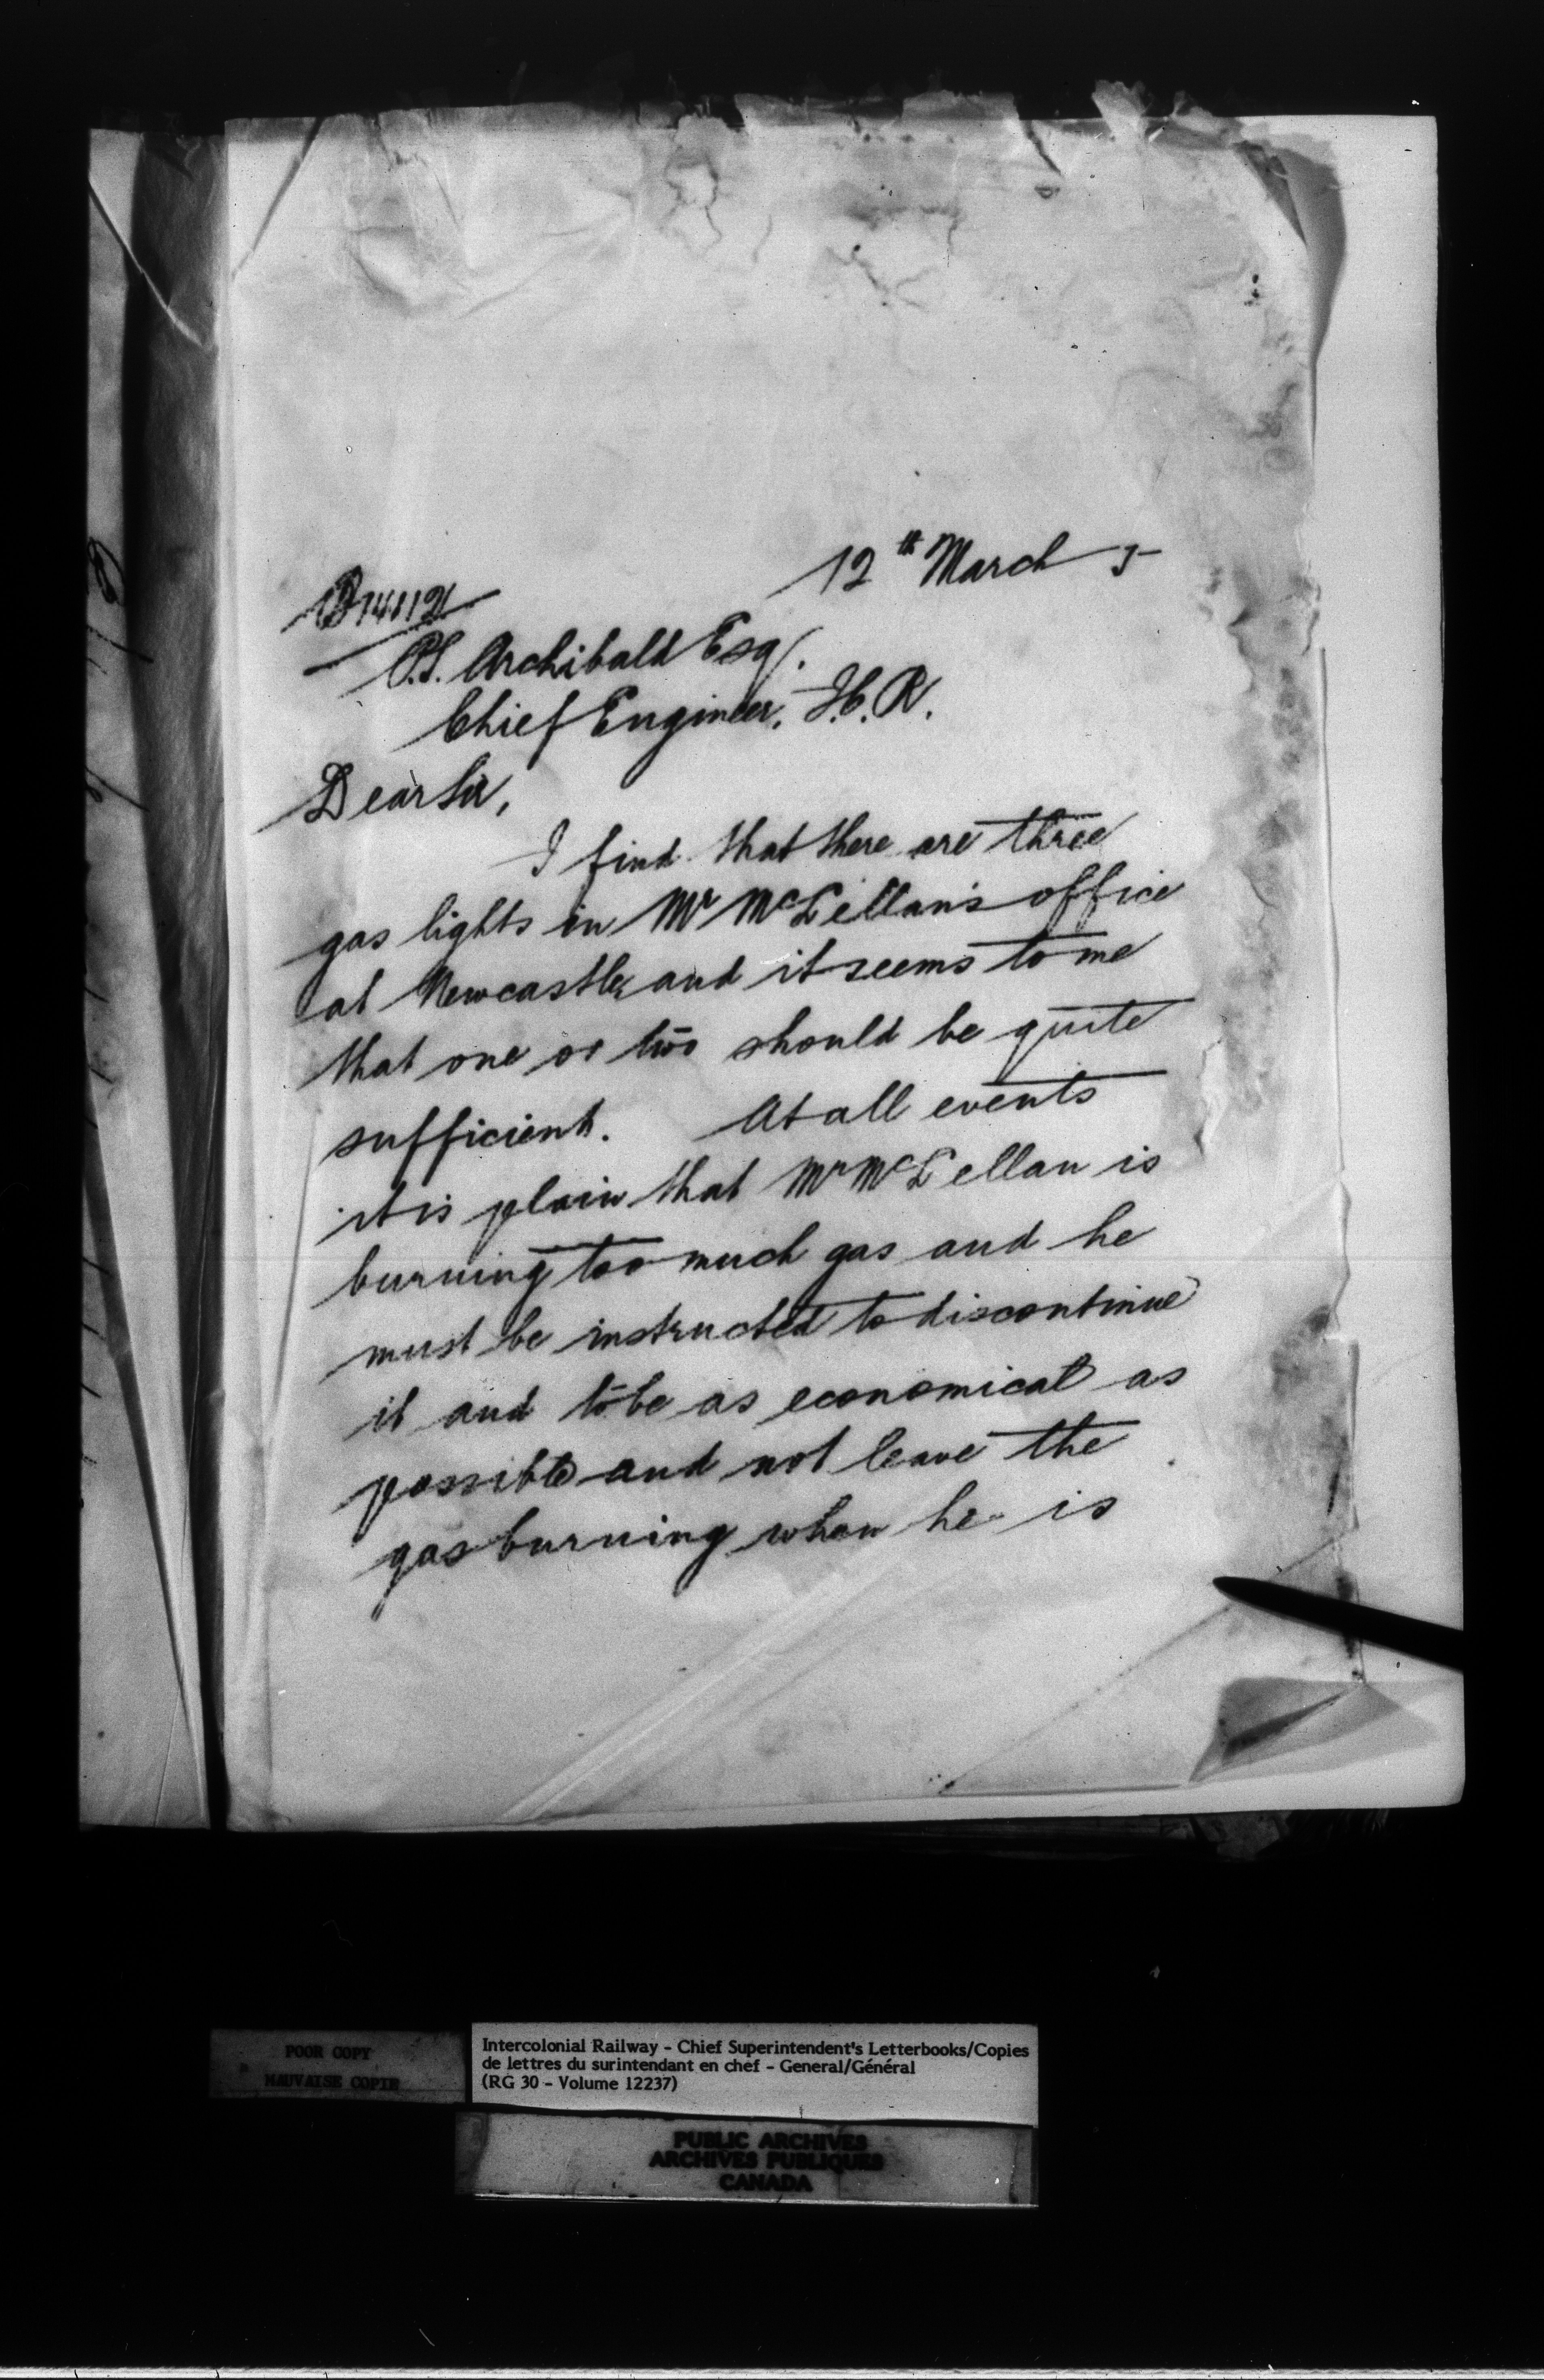 12th March 5
P.S. Archibald Esq.
Chief Engineer, I.C.R.
Dear Sir,
I find that there are three
gas lights in Mr McLellan's office
at Newcastle, and it seems to me
that one or two should be quite
sufficient. At all events
it is plain that Mr McLellan is
burning too much gas and he
must be instructed to discontinue
it and to be as economical as
possible and not leave the
gas burning when he is
POOR COPY
MAUVAISE COPIE
Intercolonial Railway - Chief Superintendent's Letterbooks/Copies
de lettres du surintendant en chef - General/Général
(RG 30 - Volume 12237)
PUBLIC ARCHIVES
ARCHIVES PUBLIQUES
CANADA